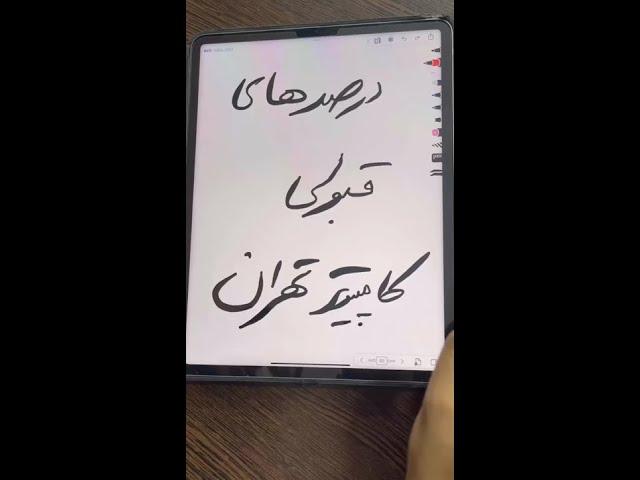 درصدهای
قبولی
کامپیوتر تهران